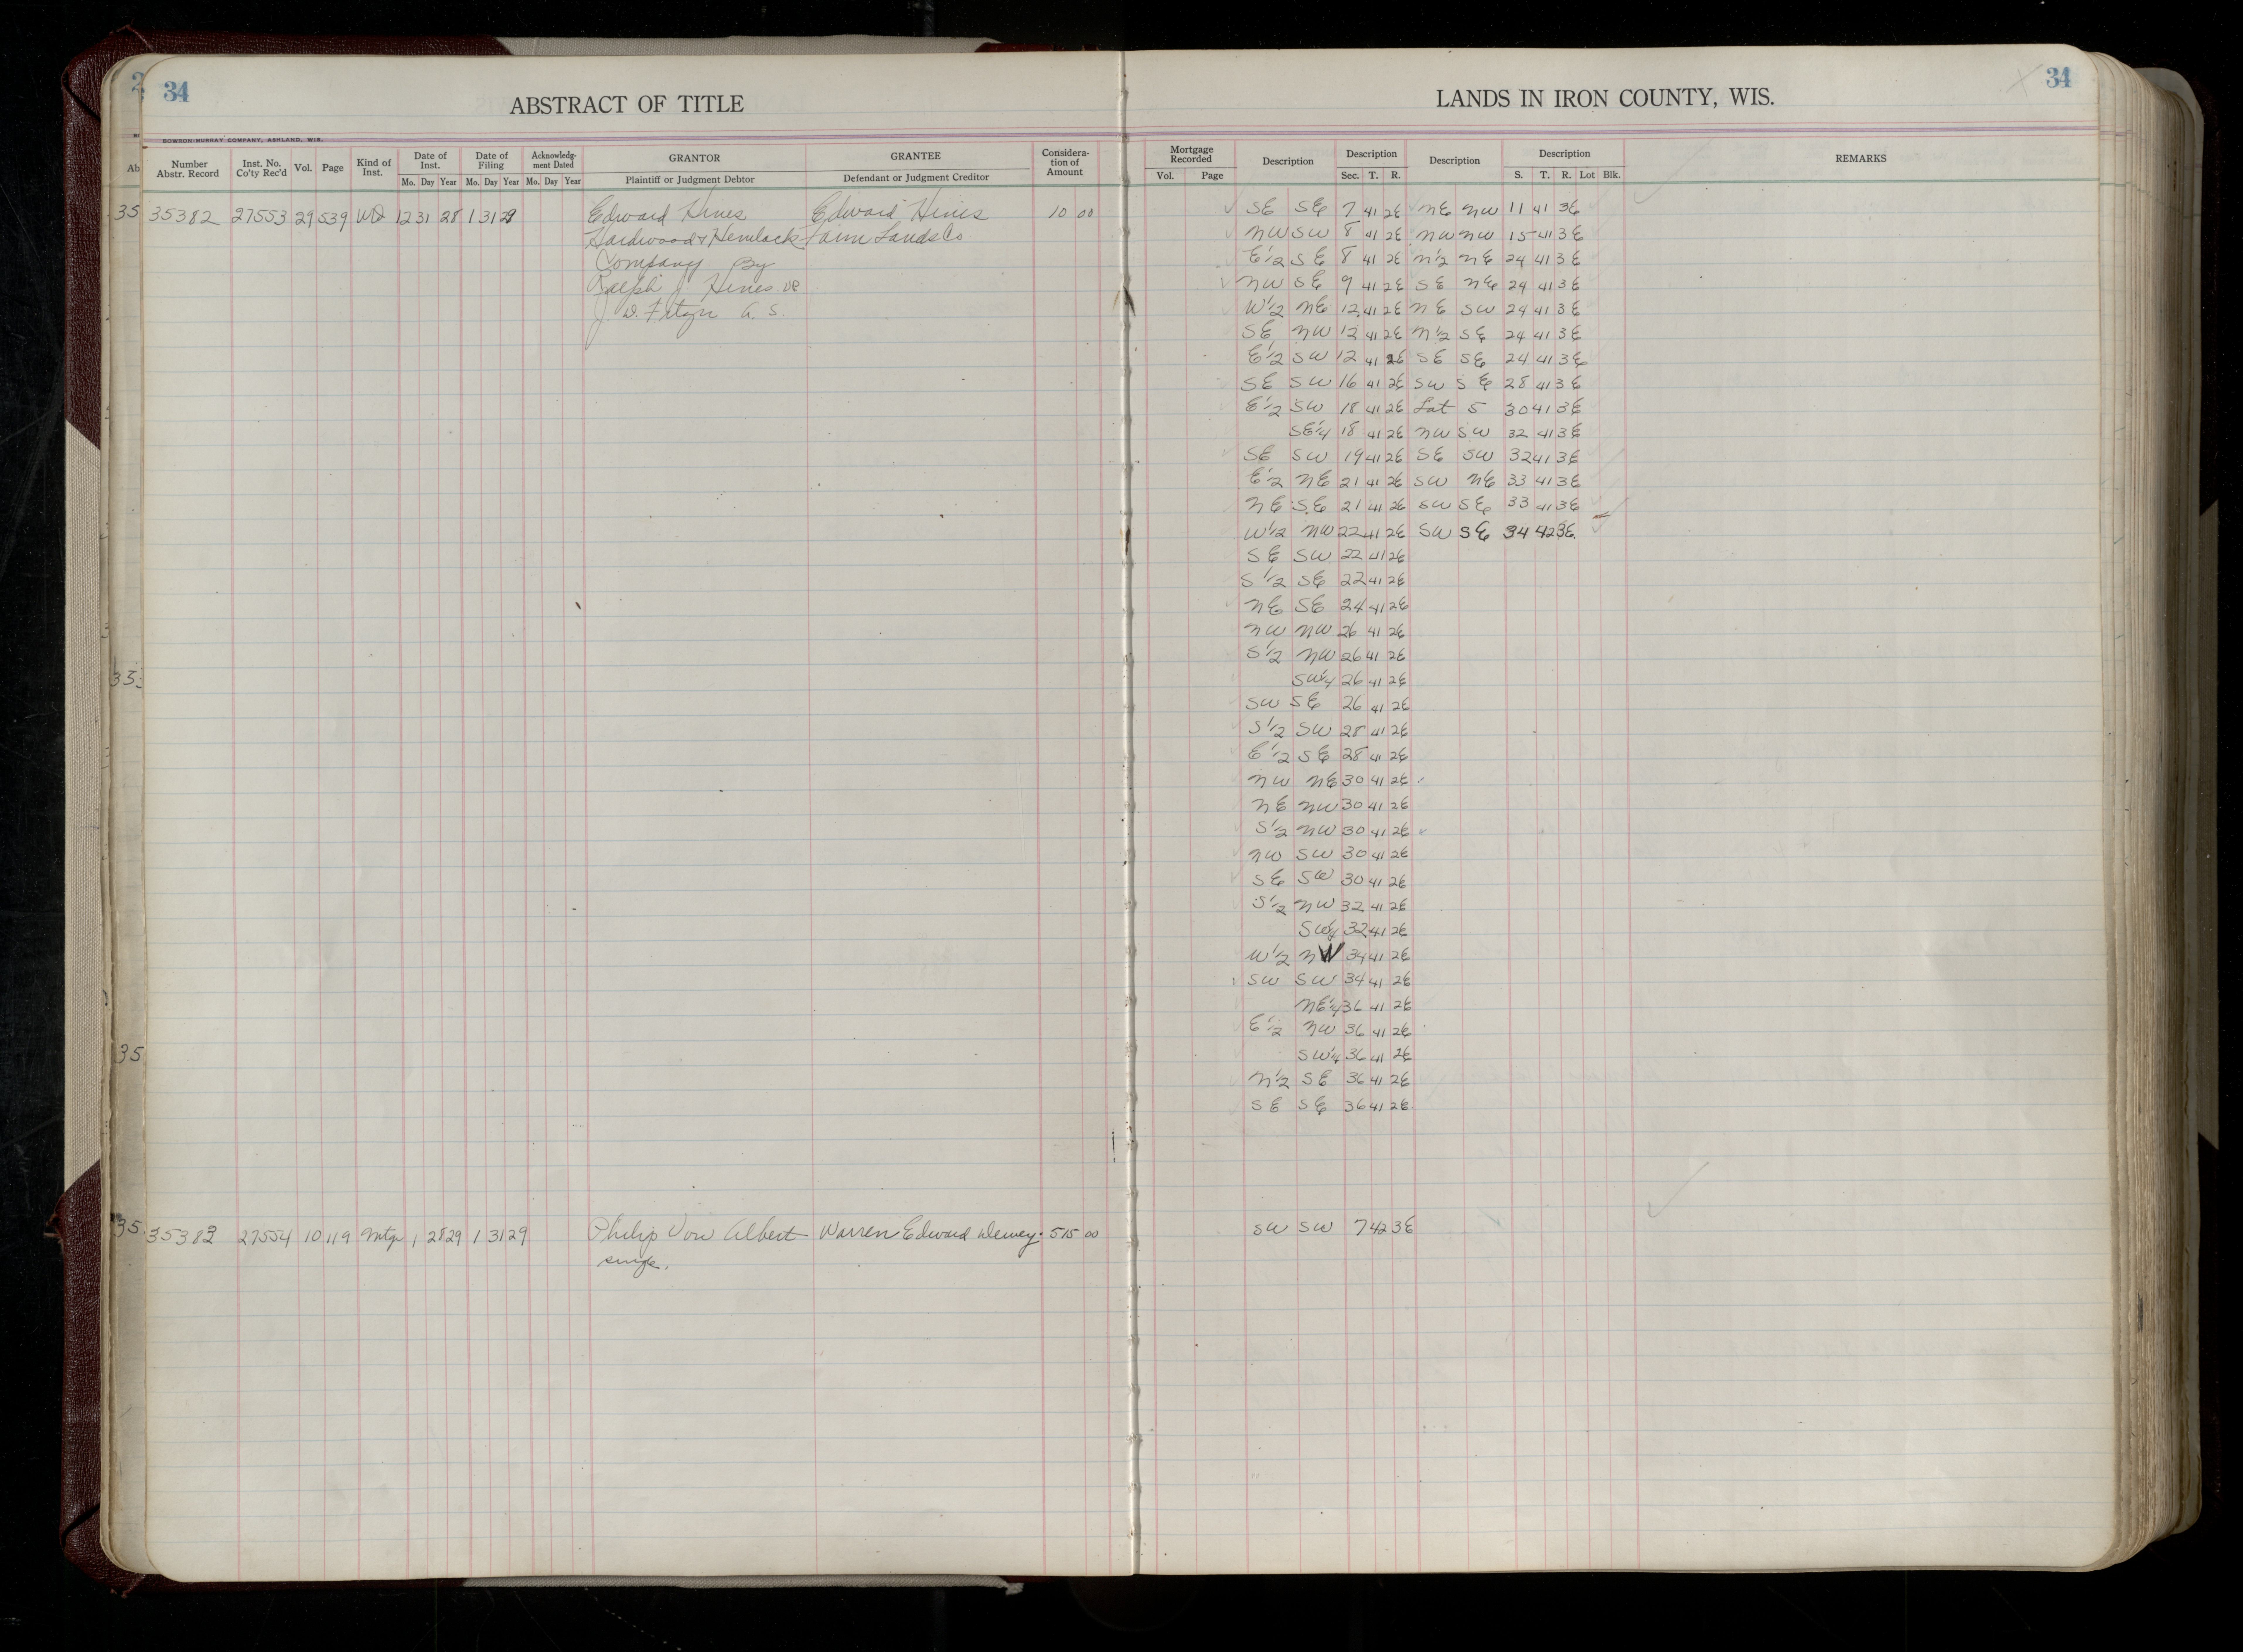 34
ABSTRACT OF TITLE
LANDS IN IRON COUNTY, WIS.
34
BOWRON-MURRAY COMPANY, ASHLAND, WIS.
Number Abstr. Record | Inst. No. Co'ty Rec'd | Vol. | Page | Kind of Inst. | Date of Inst. Mo. Day Year | Date of Filing Mo. Day Year | Acknowledg-ment Dated Mo. Day Year | GRANTOR Plaintiff or Judgment Debtor | GRANTEE Defendant or Judgment Creditor | Considera-tion of Amount | Mortgage Recorded Vol. Page | Description | Description Sec. T. R. | Description | Description S. T. R. Lot Blk. | REMARKS
35382 27553 29 539 WD 12 31 28 1 31 29 Edward Hines Edward Hines 10 00 SE SE 7 41 2E NE NW 11 41 3E
Hardwood & Hemlock Farm Lands Co NW SW 8 41 2E NW NW 15 41 3E
Company By E1/2 SE 8 41 2E N1/2 NE 24 41 3E
Ralph J. Hines VP NW SE 9 41 2E SE NE 24 41 3E
J. W. A. S. W1/2 NE 12 41 2E NE SW 24 41 3E
SE NW 12 41 2E N1/2 SE 24 41 3E
E1/2 SW 12 41 2E SE SE 24 41 3E
SE SW 16 41 2E SW SE 28 41 3E
E1/2 SW 18 41 2E Lot 5 30 41 3E
SE1/4 18 41 2E NW SW 32 41 3E
SE SW 19 41 2E SE SW 32 41 3E
E1/2 NE 21 41 2E SW NE 33 41 3E
NE SE 21 41 2E SW SE 33 41 3E
W1/2 NW 22 41 2E SW SE 34 42 3E
SE SW 22 41 2E
S1/2 SE 22 41 2E
NE SE 24 41 2E
NW NW 26 41 2E
S1/2 NW 26 41 2E
SW1/4 26 41 2E
SW SE 26 41 2E
S1/2 SW 28 41 2E
E1/2 SE 28 41 2E
NW NE 30 41 2E
NE NW 30 41 2E
S1/2 NW 30 41 2E
NW SW 30 41 2E
SE SW 30 41 2E
S1/2 NW 32 41 2E
SW1/4 32 41 2E
W1/2 NW 34 41 2E
SW SW 34 41 2E
NE1/4 36 41 2E
E1/2 NW 36 41 2E
SW1/4 36 41 2E
N1/2 SE 36 41 2E
SE SE 36 41 2E
35383 27554 10 119 Mtge 1 28 29 1 31 29 Philip Von Albert Warren Edward Dewey 515 00 SW SW 7 42 3E
single.